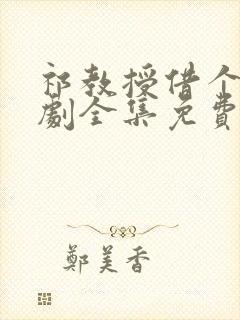 祁教授借个
劇全集免費
鄭美香